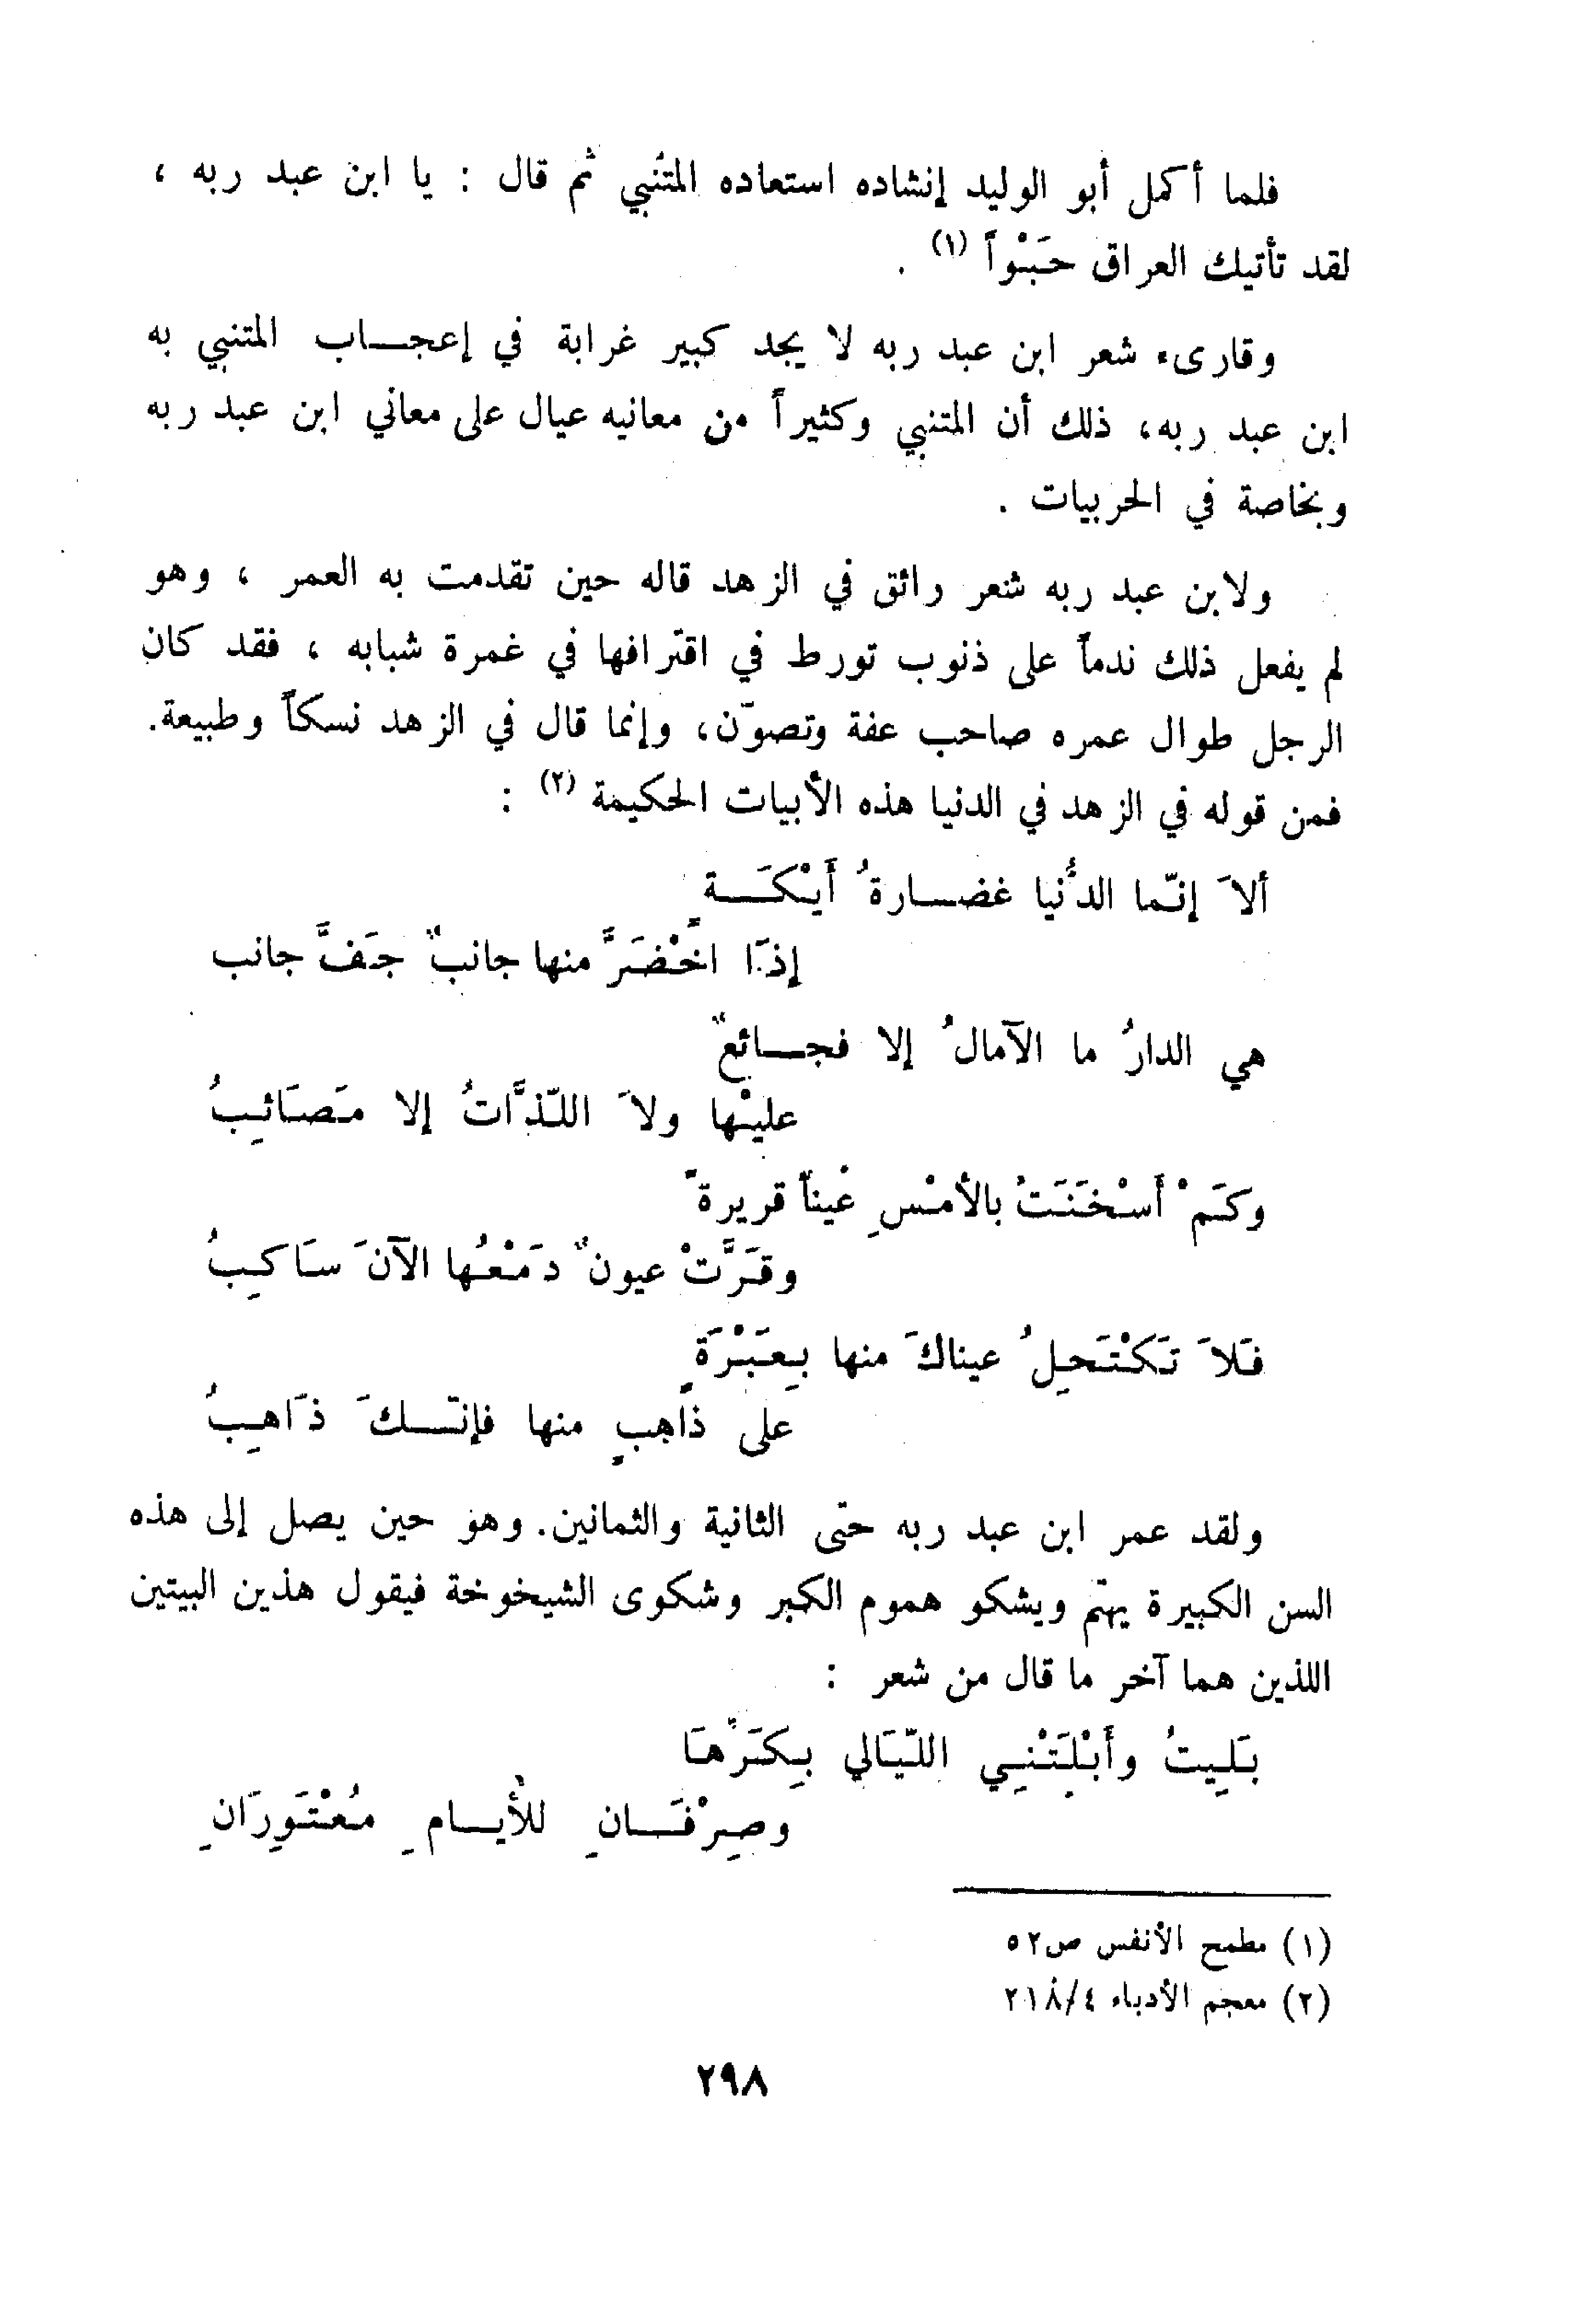 فلما أكمل أبو الوليد إنشاده استعاده المتنبي ثم قال : يا ابن عبد ربه ،
لقد تأتيك العراق حَبْواً (١) .
وقارىء شعر ابن عبد ربه لا يجد كبير غرابة في إعجـاب المتنبي به
ابن عبد ربه، ذلك أن المتنبي وكثيراً من معانيه عيال على معاني ابن عبد ربه
وبخاصة في الحربيات .
ولابن عبد ربه شعر رائق في الزهد قاله حين تقدمت به العمر ، وهو
لم يفعل ذلك ندماً على ذنوب تورط في اقترافها في غمرة شبابه ، فقد كان
الرجل طوال عمره صاحب عفة وتصوّن، وإنما قال في الزهد نسكاً وطبيعة.
فمن قوله في الزهد في الدنيا هذه الأبيات الحكيمة (٢) :
ألاَ إنّما الدُّنيا غضـارةُ أَيْكَـةٍ
إذَا اخْضَرَّ منها جانبٌ جَفَّ جانب
هي الدارُ ما الآمالُ إلا فجـائعٌ
عليْها ولاَ اللّذَّاتُ إلا مَصَائِبُ
وكَمْ أَسْخَنَتُ بالأمْسِ عْيناً قريرةً
وقَرَّتْ عيونٌ دَمْعُها الآنَ سَاكِبُ
فَلاَ تَكْتَحِلُ عيناكَ منها بِعَبْرَةٍ
على ذاهبٍ منها فإنّـكَ ذَاهِبُ
ولقد عمر ابن عبد ربه حتى الثانية والثمانين. وهو حين يصل إلى هذه
السن الكبيرة يهتم ويشكو هموم الكبر وشكوى الشيخوخة فيقول هذين البيتين
اللذين هما آخر ما قال من شعر :
بَلِيتُ وأَبْلَتْنِي اللّيَالي بِكَرِّهَا
وصِرْفَـانِ للأيـامِ مُعْتَوِرَانِ
(١) مطمح الأنفس ص٥٢
(٢) معجم الأدباء ٢١٨/٤
٢٩٨